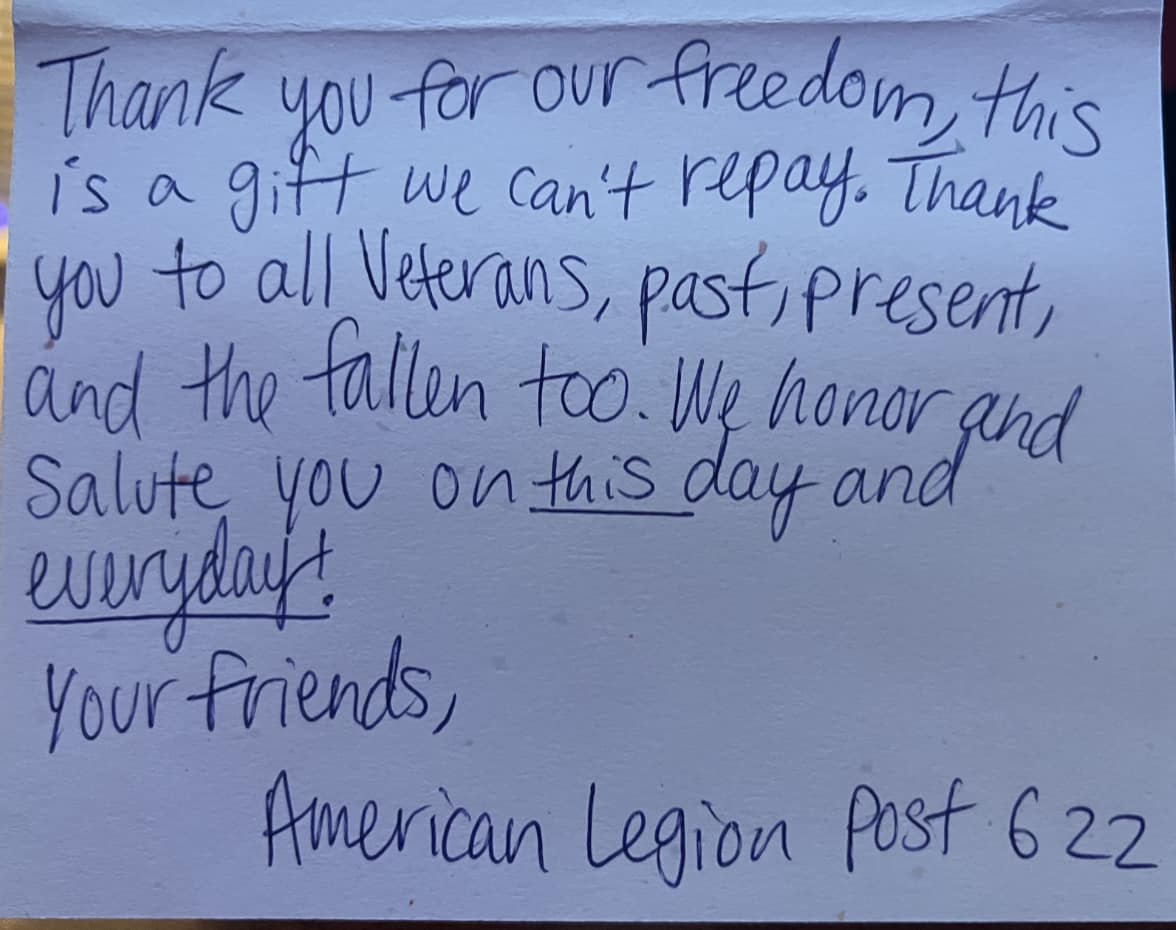 Thank you for our freedom, this
is a gift we can't repay. Thank
you to all Veterans, past, present,
and the fallen too. We honor and
Salute you on this day and
everyday!
Your friends,
American Legion Post 622